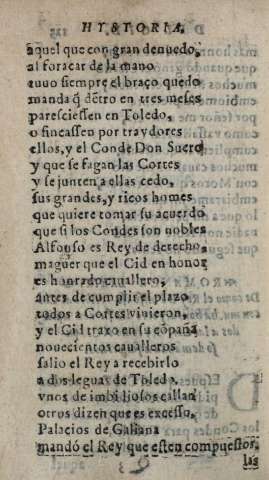 HYSTORIA.
aquel que con gran denuedo,
al foraçar de la mano
tuuo siempre el braço quedo
manda q̃ dẽtro en tres meses
paresciessen en Toledo,
o fincassen por traydores
ellos, y el Conde Don Suero
y que se fagan las Cortes
y se junten a ellas cedo,
sus grandes, y ricos homes
que quiere tomar su acuerdo
que si los Condes son nobles
Alfonso es Rey de derecho,
maguer que el Cid en honor
es honrado cauallero,
antes de cumplir el plazo
todos a Cortes vinieron,
y el Cid traxo en su cõpaña
nouecientos caualleros
salio el Rey a recebirlo
a dos leguas de Toledo,
vnos de imbidiosos callan
otros dizen que es excesso,
Palacios de Galiana
mandó el Rey que esten compuestos,
las